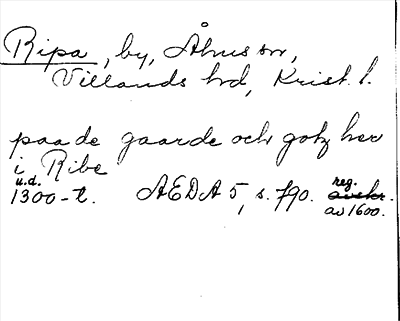 Ripa, by, Åhus sn,
Villands hd, Krist. l.
paa de gaarde och gotz her
i Ribe
u.d.
1300-t. AEDA 5, s. 790. reg.
av 1600.